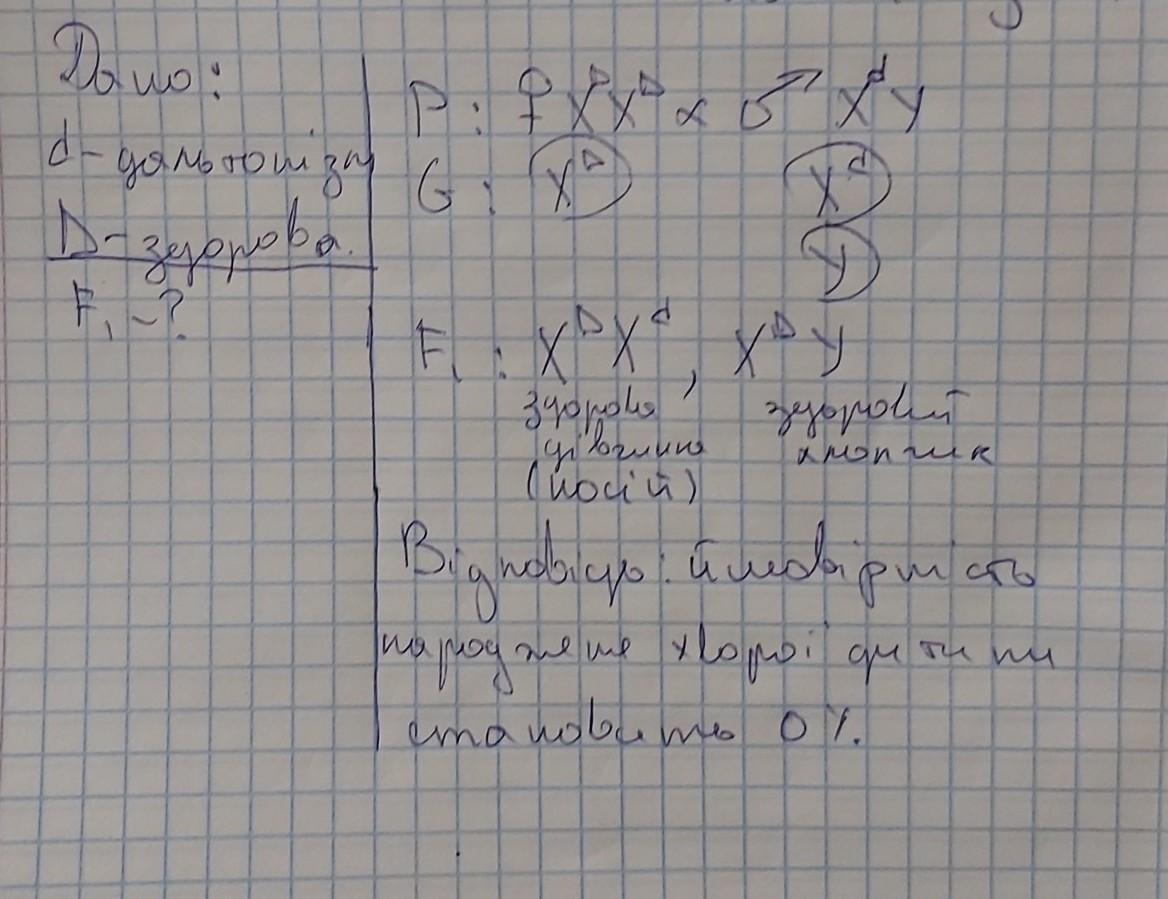 Дано:
d - дальтонізм
D - здорова.
F₁ - ?
P: ♀ XᴰXᴰ × ♂ XᵈY
G: Xᴰ Xᵈ
Y
F₁: XᴰXᵈ, XᴰY
здорова здоровий
дівчина хлопчик
(носій)
Відповідь: ймовірність
народження хворої дитини
становить 0%.